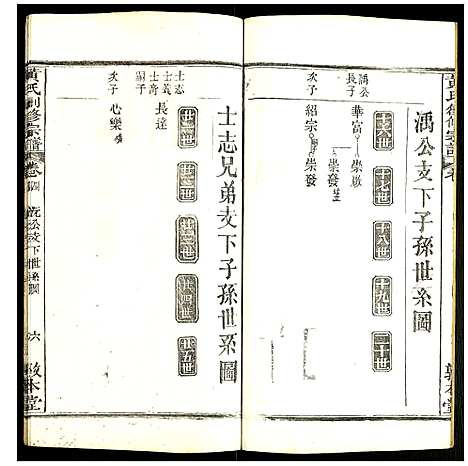 禹公支下子孫世系圖
十六世
十七世
十八世
十九世
二十世
禹公
長子
華富
崇嶽
次子
紹宗
崇發
黃氏創修宗譜
敦本堂
士志兄弟支下子孫世系圖
廿一世
廿二世
廿三世
廿四世
廿五世
士志
士義
士奇
嗣子
長達
次子
心樂
黃氏創修宗譜
卷四
支下世系圖
六
敦本堂